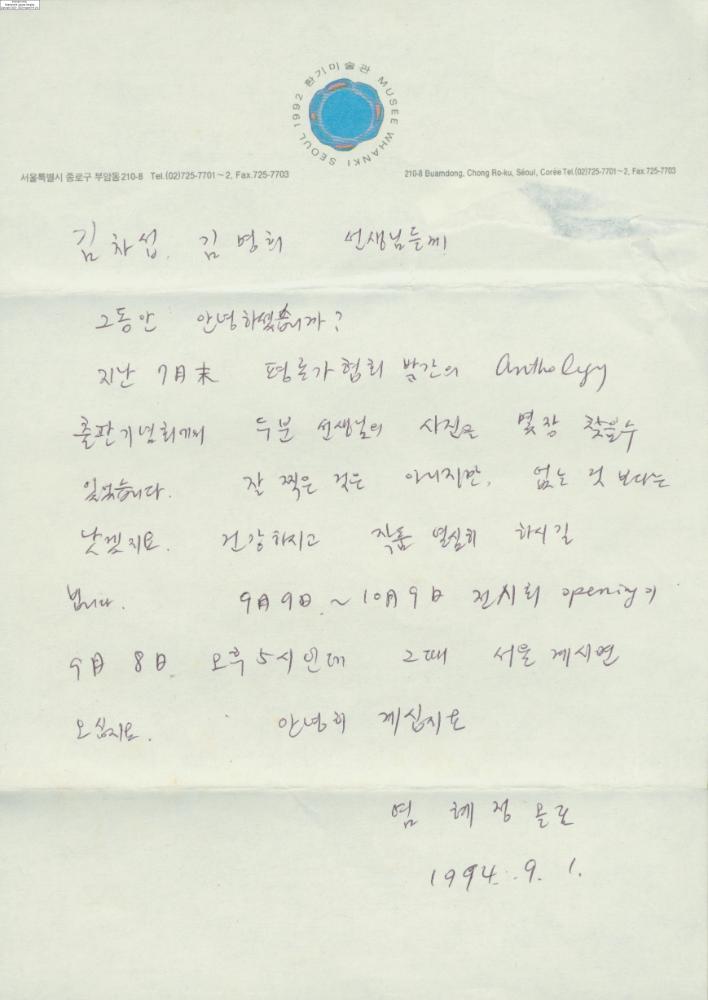 환기미술관 MUSEE WHANKI SEOUL 1992
서울특별시 종로구 부암동 210-8 Tel.(02)725-7701~2, Fax.725-7703
210-8 Buamdong, Chong Ro-ku, Séoul, Corée Tel.(02)725-7701~2, Fax.725-7703
김차섭, 김명희 선생님들께
그동안 안녕하셨습니까?
지난 7月末 평론가협회 발간의 anthology
출판기념회에서 두분 선생님의 사진을 몇장 찾을수
있었습니다. 잘 찍은 것은 아니지만, 없는 것 보다는
낫겠지요. 건강하시고 작품 열심히 하시길
빕니다. 9月 9日 ~ 10月 9日 전시회 opening이
9月 8日 오후 5시인데 그때 서울 계시면
오십시요. 안녕히 계십시요
염 혜정 올림
1994. 9. 1.